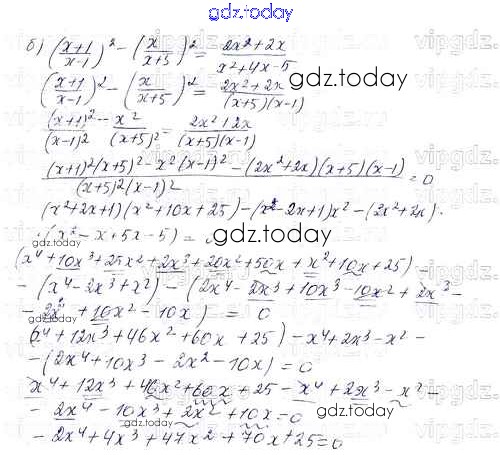 gdz.today
б) ((x+1)/(x-1))² - (x/(x+5))² = (2x²+2x)/(x²+4x-5)
((x+1)/(x-1))² - (x/(x+5))² = (2x²+2x)/((x+5)(x-1))
gdz.today
(x+1)²/(x-1)² - x²/(x+5)² = (2x²+2x)/((x+5)(x-1))
((x+1)²(x+5)² - x²(x-1)² - (2x²+2x)(x+5)(x-1))/((x+5)²(x-1)²) = 0
(x²+2x+1)(x²+10x+25) - (x²-2x+1)x² - (2x²+2x)·
·(x²-x+5x-5) =
gdz.today
gdz.today
(x⁴+10x³+25x²+2x³+20x²+50x+x²+10x+25) -
- (x⁴-2x³+x²) - (2x⁴-2x³+10x³-10x²+2x³-
- 2x²+10x²-10x) = 0
(x⁴+12x³+46x²+60x+25) - x⁴+2x³-x²-
- (2x⁴+10x³-2x²-10x) = 0
x⁴+12x³+46x²+60x+25-x⁴+2x³-x²-
- 2x⁴-10x³+2x²+10x=0
gdz.today
- 2x⁴+4x³+47x²+70x+25=0